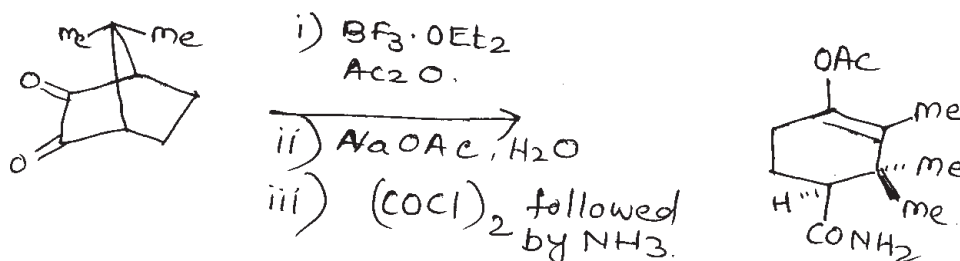 me me
O
O
i) BF3·OEt2
Ac2O.
ii) NaOAc, H2O
iii) (COCl)2 followed
by NH3.
OAc
me
me
me.
H
CONH2